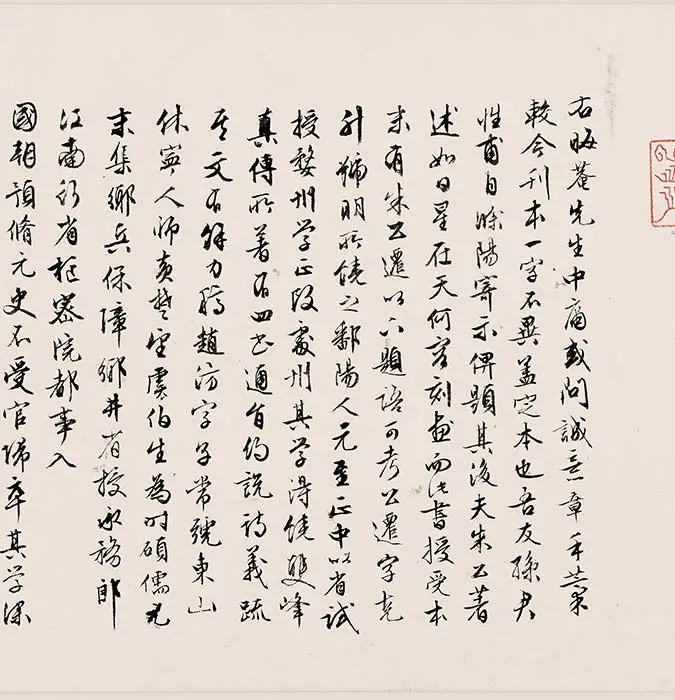 右晦菴先生中庸或問誠意章手藁
較今刊本一字不異蓋定本也吾友孫君
性甫自滁陽寄示俾題其後夫朱公著
述如日星在天何容刻畫而此書授受本
末有朱公遷以下題語可考公遷字克
升號明所饒之鄱陽人元至正中以省試
授婺州學正改處州其學得饒雙峰
真傳所著有四書通旨約說詩義疏
其文有力趙汸字子常號東山
休寧人師黃楚望虞伯生為時碩儒元
末集鄉兵保障鄉井省授承務郎
江南行省樞密院都事入
國朝預脩元史不受官歸卒其學深